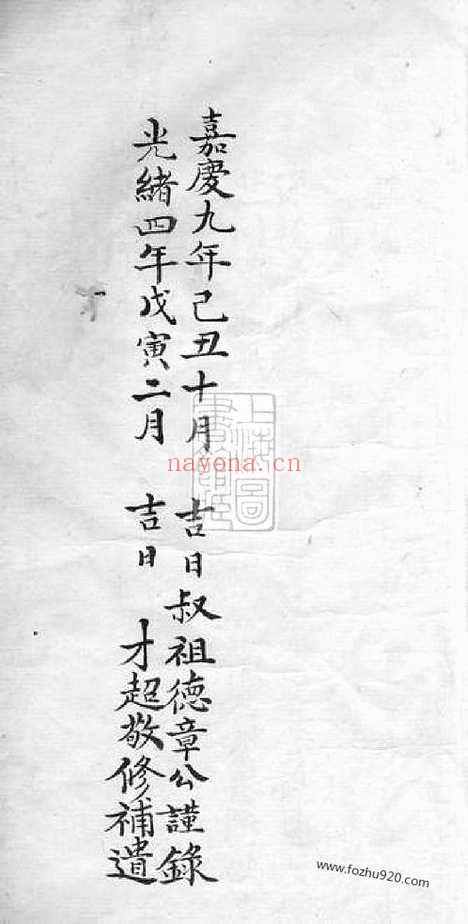 嘉慶九年己丑十月 吉日叔祖德章公謹錄
光緒四年戊寅二月 吉日 才超敬修補遺
nayona.cn
www.fozhu920.com